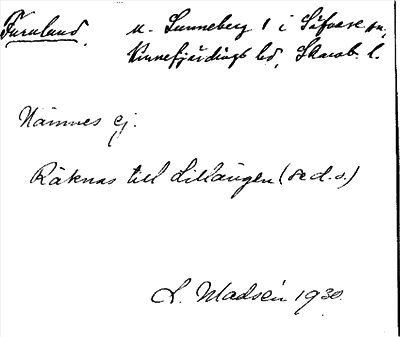 Furulund. u. Sunneberg 1 i Säfvare sn,
Kinnefjärdings hd, Skarab. l.
Nämnes ej.
Räknas till Lillängen (se d. o.)
L. Madsén 1930.